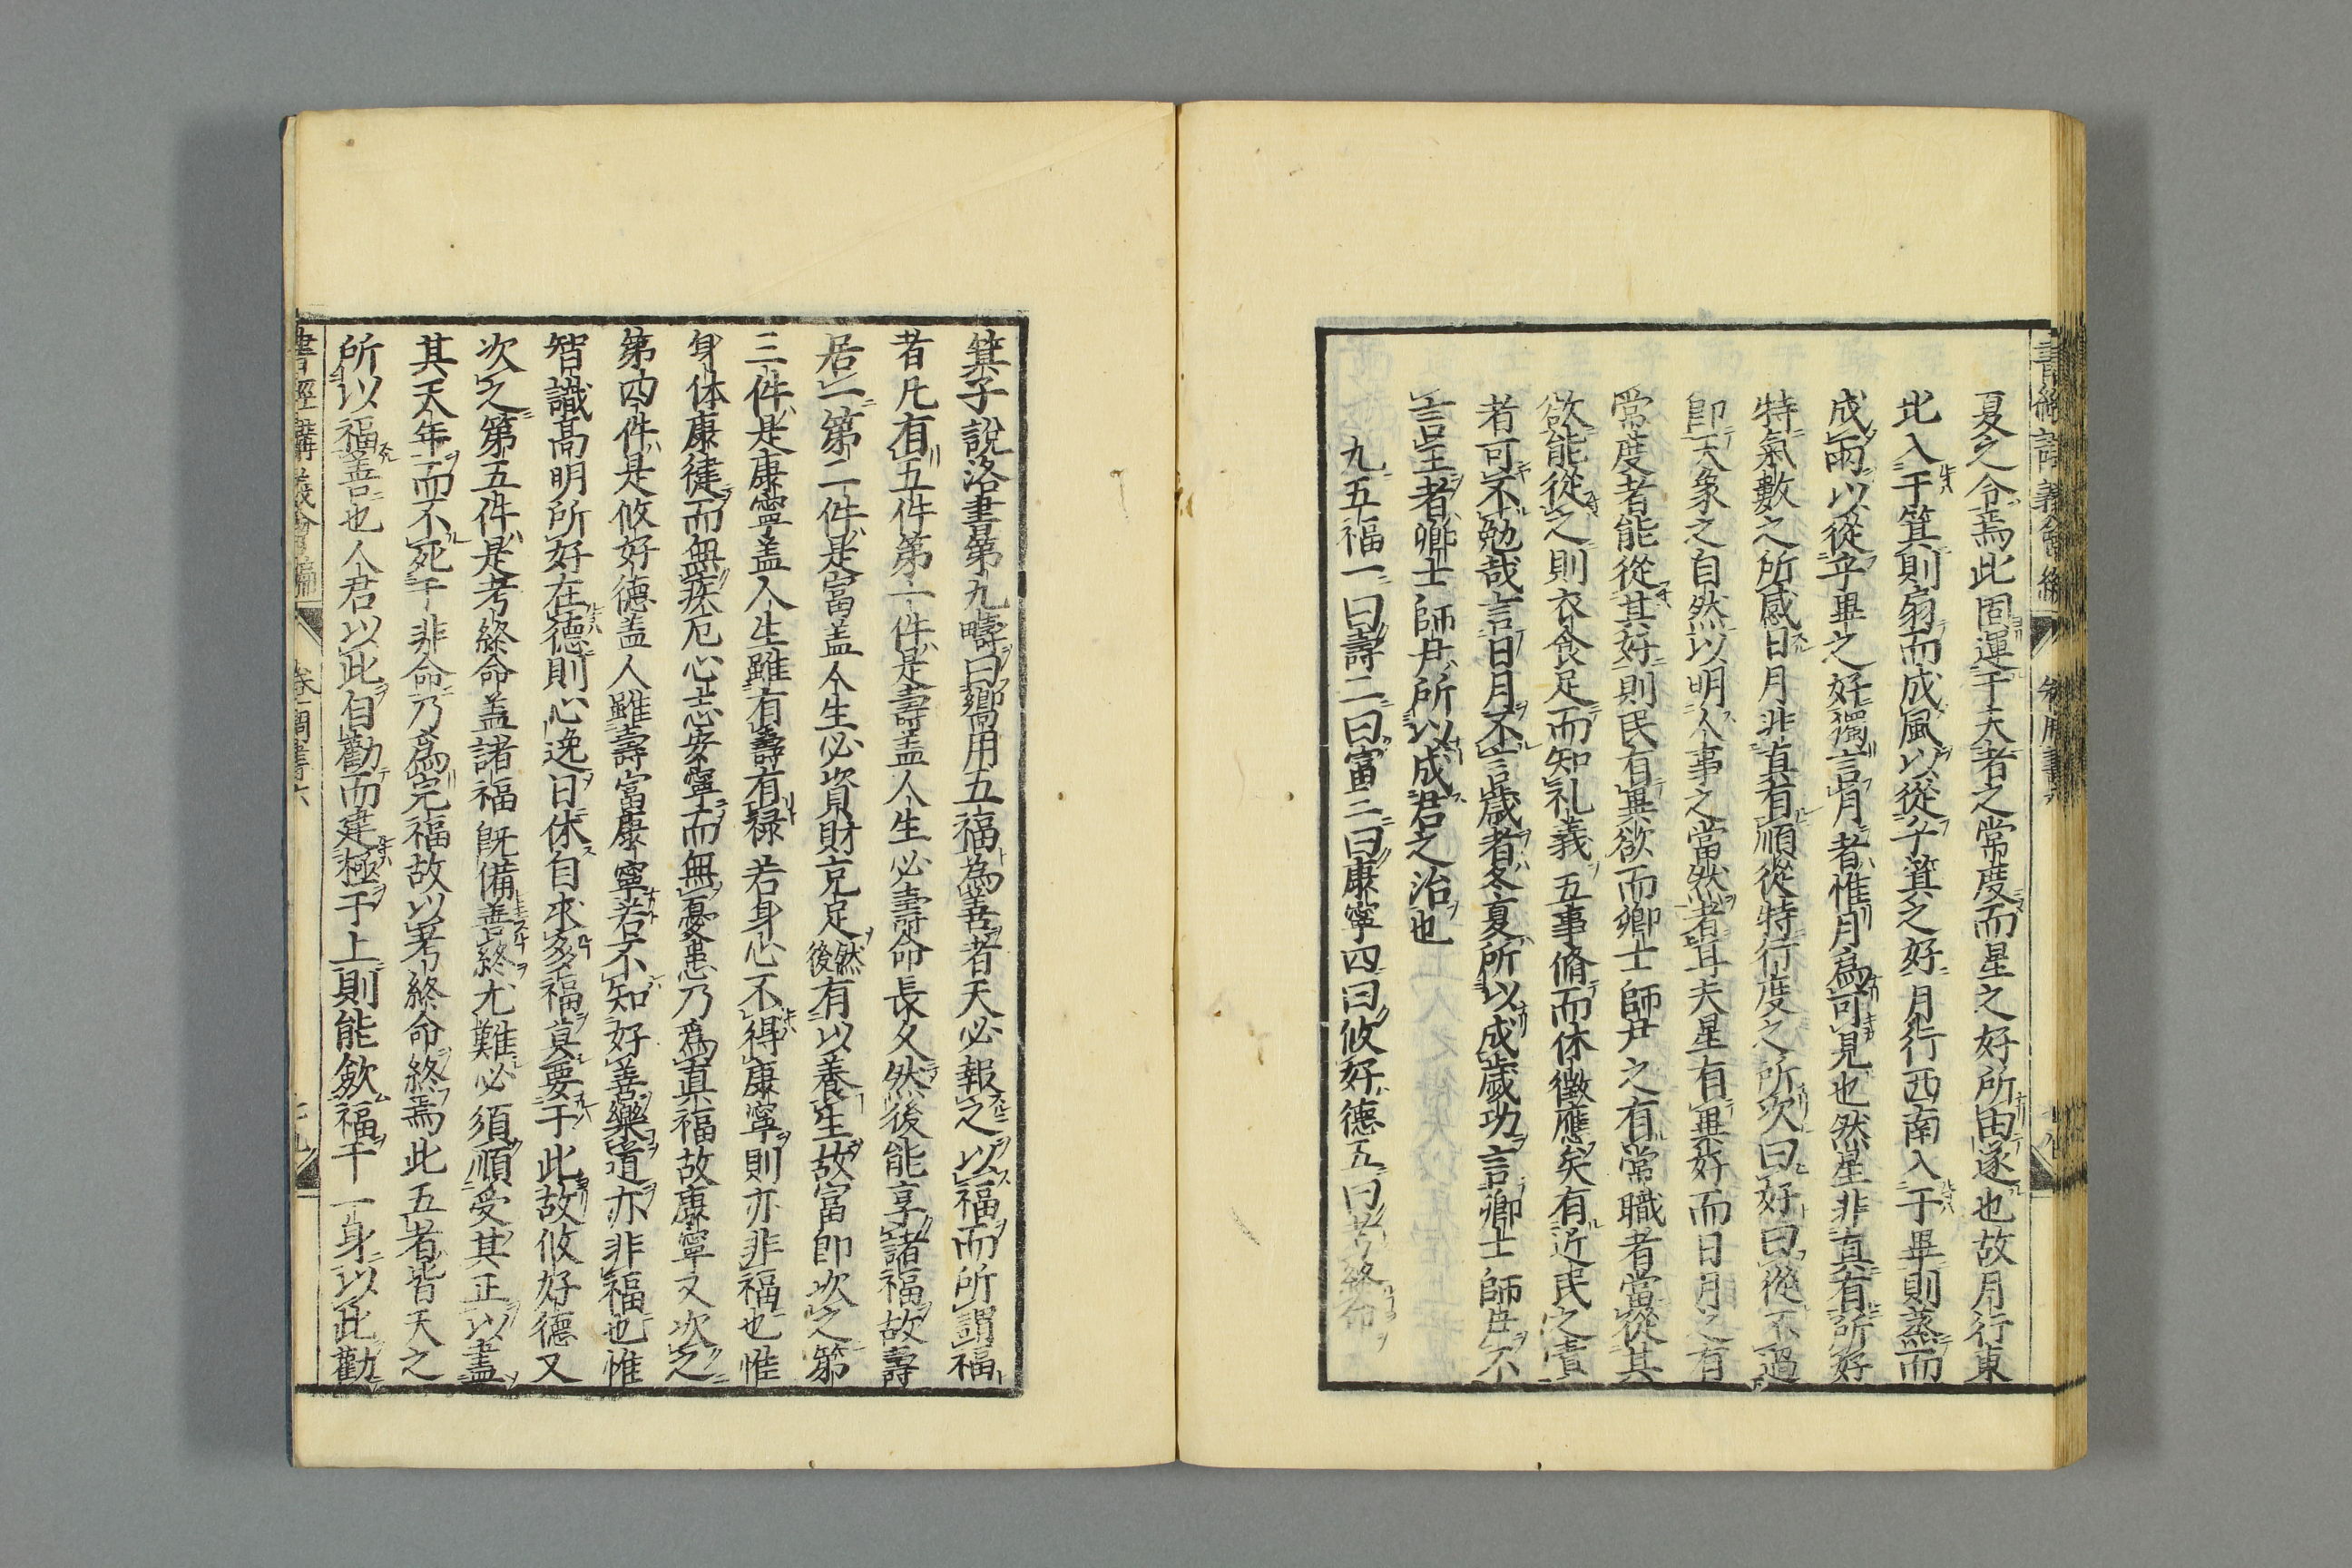 夏之令焉此固運于天者之常度而星之好所由遂也故月行東
北入于箕則扇而成風以從乎箕之好月行西南入于畢則蒸而
成雨以從乎畢之好獨言月者惟月爲可見也然星非真有所好
特氣數之所感日月非真有順從特行度之所次曰好曰從不過
即天象之自然以明人事之當然者耳夫星有異好而日月之有
常度者能從其好則民有異欲而卿士師尹之有常職者當從其
欲能從之則衣食足而知礼義五事脩而休徵應矣有近民之責
者可不勉哉言日月不言歲者冬夏所以成歲功言卿士師尹不
言王者卿士師尹所以成君之治也
九五福一曰壽二曰富三曰康寧四曰攸好德五曰考終命
箕子說洛書第九疇曰嚮用五福為善者天必報之以福而所謂福
者凡有五件第一件是壽盖人生必壽命長久然後能享諸福故壽
居一第二件是富盖人生必資財充足然後有以養生故富即次之第
三件是康寧盖人生雖有壽有禄若身心不得康寧則亦非福也惟
身体康健而無疾厄心志安寧而無憂患乃爲真福故康寧又次之
第四件是攸好德盖人雖壽富康寧若不知好善樂道亦非福也惟
智識高明所好在德則心逸日休自求多福莫要于此故攸好德又
次之第五件是考終命盖諸福既備善終尤難必須順受其正以盡
其天年而不死于非命乃爲完福故以考終命終焉此五者皆天之
所以福善也人君以此自勸而建極于上則能斂福于一身以此勸
書經講義會編 卷 周書六